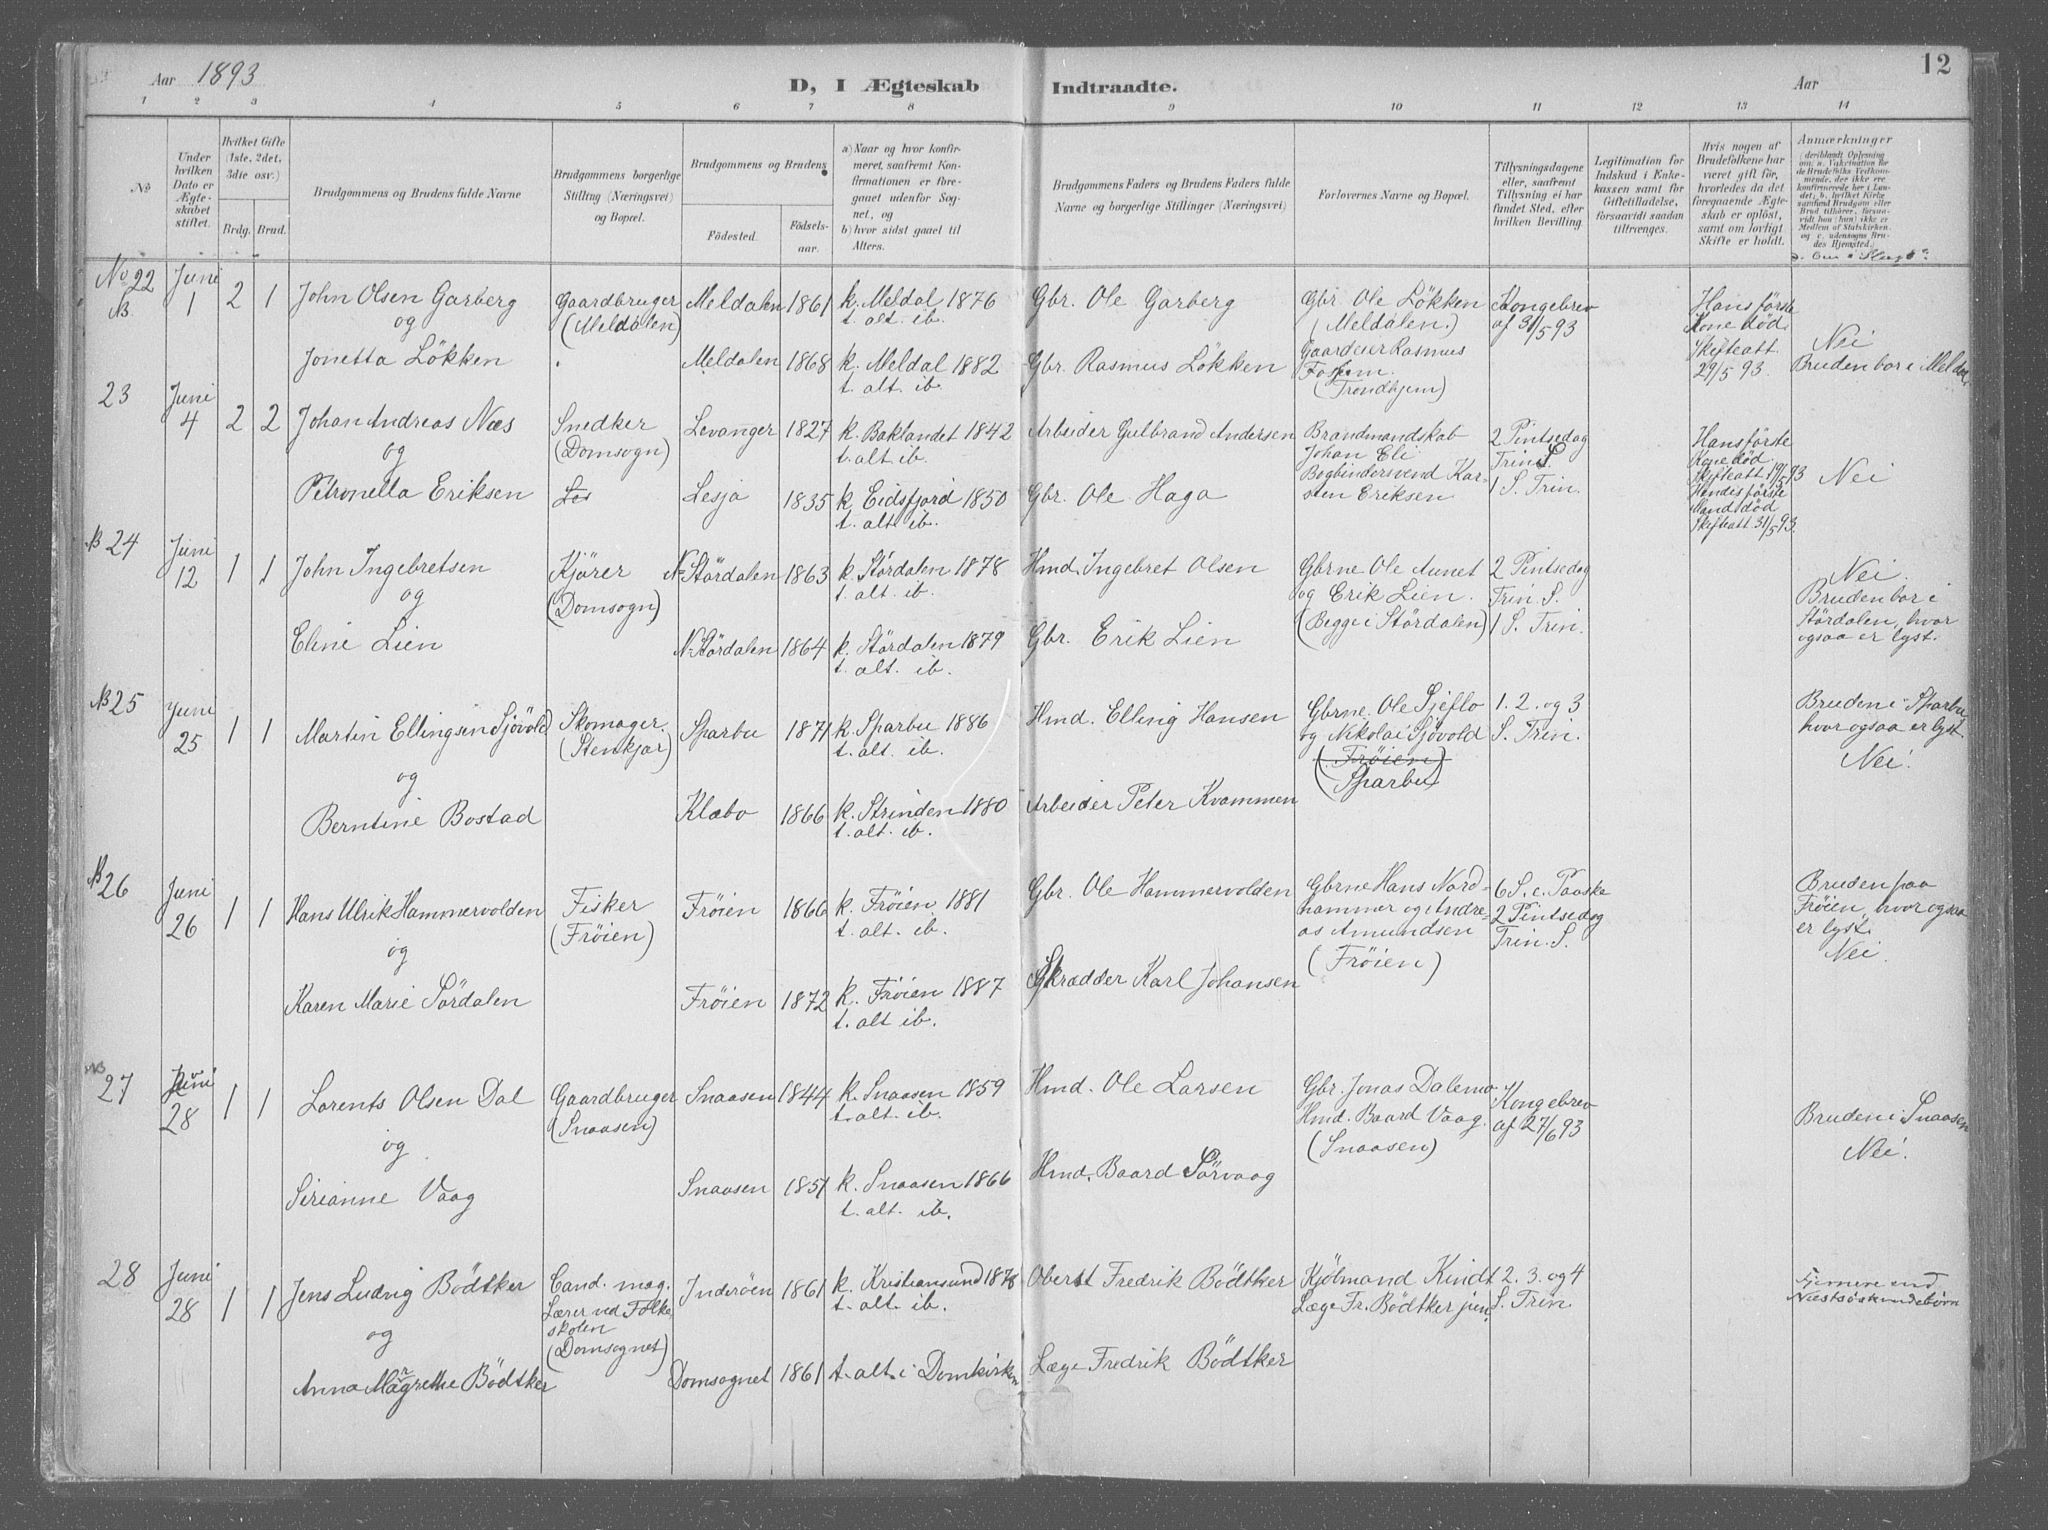 Aar 1893
D, I Ægteskab Indtraadte.
Aar
12
1 2 3 4 5 6 7 8 9 10 11 12 13 14
No
Under hvilken Dato er Ægteskabet stiftet.
Hvilket Gifte (1ste, 2det, 3die osv.)
Brdg. Brud.
Brudgommens og Brudens fulde Navne
Brudgommens borgerlige Stilling (Næringsvei) og Bopæl.
Brudgommens og Brudens
Fødested. Fødselsaar.
a) Naar og hvor konfirmeret, saafremt Konfirmationen er foregaaet udenfor Sognet, og
b) hvor sidst gaaet til Alters.
Brudgommens Faders og Brudens Faders fulde Navne og borgerlige Stillinger (Næringsvei)
Forlovernes Navne og Bopæl.
Tillysningsdagene eller, saafremt Tillysning ei har fundet Sted, efter hvilken Bevilling
Legitimation for Indskud i Enkekassen samt for Giftetilladelse, forsaavidt saadan tiltrænges.
Hvis nogen af Brudefolkene har været gift før, hvorledes da det foregaaende Ægteskab er opløst, samt om lovligt Skifte er holdt.
Anmærkninger
(deriblandt Oplysning om: a. Vakcination for de Brudefolks Vedkommende, der ikke ere konfirmerede her i Landet; b. hvilket Kirkesamfund Brudgom eller Brud tilhører, forsaavidt han (hun) ikke er Medlem af Statskirken, og c. udensogns Brudes Hjemsted.)
No 22
B.
Juni 1
2 1
John Olsen Garberg
og
Jonetta Lökken
Gaardbruger
(Meldalen)
Meldalen 1861
k. Meldal 1876
t. alt. ib.
Meldalen 1868
k. Meldal 1882
t. alt. ib.
Gbr. Ole Garberg
Gbr. Rasmus Lökken
Gbr. Ole Lökken
(Meldalen.)
Gaardeier Rasmus
(Trondhjem)
Kongebrev
af 31/5 93
Hans förste
Kone död.
Skifteatt.
29/5 93.
Nei
Bruden bor i Meldal.
23
Juni 4
2 2
Johan Andreas Næs
og
Petronella Eriksen
Snedker
(Domsogn)
Les
Levanger 1827
k. Baklandet 1842
t. alt ib.
Lesja 1835
k Eidsfjord 1850
t. alt ib.
Arbeider Gulbrand Andersen
Gbr. Ole Haga
Brandmandskab
Johan Eli
Bogbindersvend Karsten Eriksen
2 Pintsedag
Trin. S.
1 S. Trin.
Hans förste
Kone död.
Skifteatt. 19/5 93
Hendes förste
Mand död
Skifteatt 31/5 93.
Nei
B 24
Juni 12
1 1
John Ingebretsen
og
Eline Lien
Kjörer
(Domsogn)
N. Stördalen 1863
k. Stördalen 1878
t. alt. ib.
N. Stördalen 1864
k. Stördalen 1879
t. alt. ib.
Hmd. Ingebret Olsen
Gbr. Erik Lien
Gbrne Ole Aunet
og Erik Lien.
(Begge i Stördalen)
2 Pintsedag
Trin. S.
1 S. Trin.
Nei.
Bruden bor i
Stördalen, hvor
ogsaa er lyst.
B 25
Juni 25
1 1
Martin Ellingsen Sjövold
og
Berntine Bostad
Skomager.
(Stenkjær)
Sparbu 1871
k. Sparbu 1886
t. alt. ib.
Klæbo 1866
k. Strinden 1880
t. alt. ib.
Hmd. Elling Hansen
Arbeider Peter Kvammen
Gbrne. Ole Sjeflo
og Nikolai Sjövold
(Fröien)
(Sparbu)
1. 2. og 3
S. Trin.
Bruden i Sparbu,
hvor ogsaa er lyst.
Nei!
B 26
Juni 26
1 1
Hans Ulrik Hammervolden
og
Karen Marie Sördalen
Fisker
(Fröien)
Fröien 1866
k. Fröien 1881
t. alt. ib.
Fröien 1872
k. Fröien 1887
t. alt ib.
Gbr. Ole Hammervolden
Skrædder Karl Johansen
Gbrne Hans Nordhammer og Andreas Amundsen
(Fröien)
6 S. e. Paaske
2 Pintsedag
Trin. S.
Bruden paa
Fröien, hvor ogsaa
er lyst.
Nei.
NB
27
Juni 28
1 1
Lorents Olsen Dal
og
Sirianne Vaag
Gaardbruger
(Snaasen)
Snaasen 1844
k. Snaasen 1859
t. alt. ib.
Snaasen 1851
k. Snaasen 1866
t. alt. ib.
Hmd. Ole Larsen
Hmd. Baard Sörvaag
Gbr. Jonas Dalemo
Hmd. Baard Vaag.
(Snaasen)
Kongebrev
af 27/6 93
Bruden i Snaasen
Nei!
28
Juni 28
1 1
Jens Ludvig Bödtker
og
Anna Margrethe Bödtker
Cand. mag.
Lærer ved Folkeskolen
(Domsognet)
Inderöen 1861
k. Kristiansund 1878
t. alt. ib.
Domsognet 1861
t. alt. i Domkirken
Oberst Fredrik Bödtker
Læge Fredrik Bödtker
Kjölmand Kindt
Læge Fr. Bödtker jun.
2. 3. og 4
S. Trin.
Fjernere end
Næstsöskendebörn